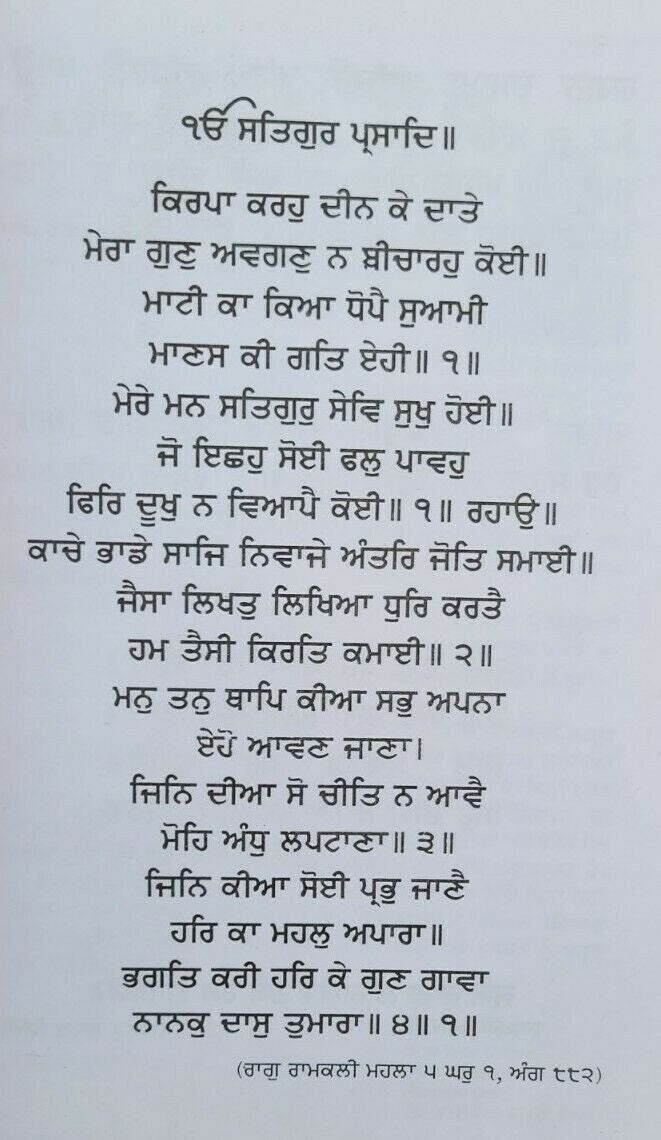 ੴ ਸਤਿਗੁਰ ਪ੍ਰਸਾਦਿ॥
ਕਿਰਪਾ ਕਰਹੁ ਦੀਨ ਕੇ ਦਾਤੇ
ਮੇਰਾ ਗੁਣੁ ਅਵਗਣੁ ਨ ਬੀਚਾਰਹੁ ਕੋਈ॥
ਮਾਟੀ ਕਾ ਕਿਆ ਧੋਪੈ ਸੁਆਮੀ
ਮਾਣਸ ਕੀ ਗਤਿ ਏਹੀ॥ ੧॥
ਮੇਰੇ ਮਨ ਸਤਿਗੁਰੁ ਸੇਵਿ ਸੁਖੁ ਹੋਈ॥
ਜੋ ਇਛਹੁ ਸੋਈ ਫਲੁ ਪਾਵਹੁ
ਫਿਰਿ ਦੂਖੁ ਨ ਵਿਆਪੈ ਕੋਈ॥ ੧॥ ਰਹਾਉ॥
ਕਾਚੇ ਭਾਡੇ ਸਾਜਿ ਨਿਵਾਜੇ ਅੰਤਰਿ ਜੋਤਿ ਸਮਾਈ॥
ਜੈਸਾ ਲਿਖਤੁ ਲਿਖਿਆ ਧੁਰਿ ਕਰਤੈ
ਹਮ ਤੈਸੀ ਕਿਰਤਿ ਕਮਾਈ॥ ੨॥
ਮਨੁ ਤਨੁ ਥਾਪਿ ਕੀਆ ਸਭੁ ਅਪਨਾ
ਏਹੋ ਆਵਣ ਜਾਣਾ।
ਜਿਨਿ ਦੀਆ ਸੋ ਚੀਤਿ ਨ ਆਵੈ
ਮੋਹਿ ਅੰਧੁ ਲਪਟਾਣਾ॥ ੩॥
ਜਿਨਿ ਕੀਆ ਸੋਈ ਪ੍ਰਭੁ ਜਾਣੈ
ਹਰਿ ਕਾ ਮਹਲੁ ਅਪਾਰਾ॥
ਭਗਤਿ ਕਰੀ ਹਰਿ ਕੇ ਗੁਣ ਗਾਵਾ
ਨਾਨਕੁ ਦਾਸੁ ਤੁਮਾਰਾ॥ ੪॥ ੧॥
(ਰਾਗੁ ਰਾਮਕਲੀ ਮਹਲਾ ੫ ਘਰੁ ੧, ਅੰਗ ੮੮੨)